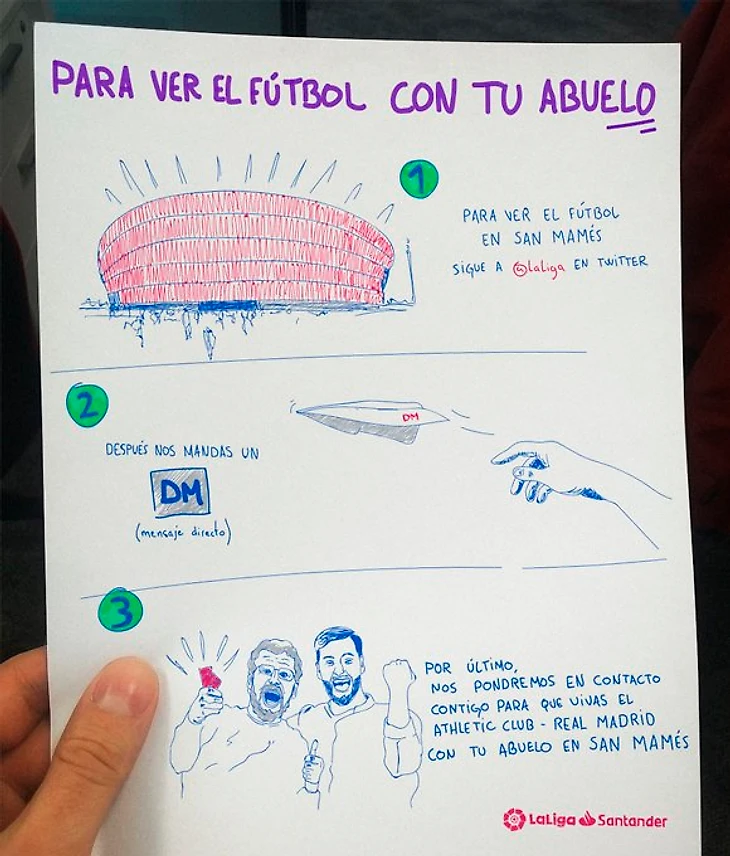 PARA VER EL FÚTBOL CON TU ABUELO
1
PARA VER EL FÚTBOL
EN SAN MAMÉS
SIGUE A @LaLiga EN TWITTER
2
DESPUÉS NOS MANDAS UN
DM
(mensaje directo)
DM
3
POR ÚLTIMO,
NOS PONDREMOS EN CONTACTO
CONTIGO PARA QUE VIVAS EL
ATHLETIC CLUB - REAL MADRID
CON TU ABUELO EN SAN MAMÉS
LaLiga Santander